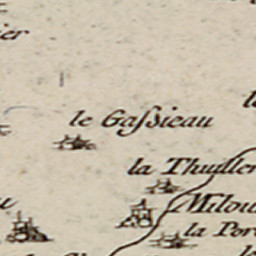 ier
le Gaſsieau
la Thuiller
Milou
la Por